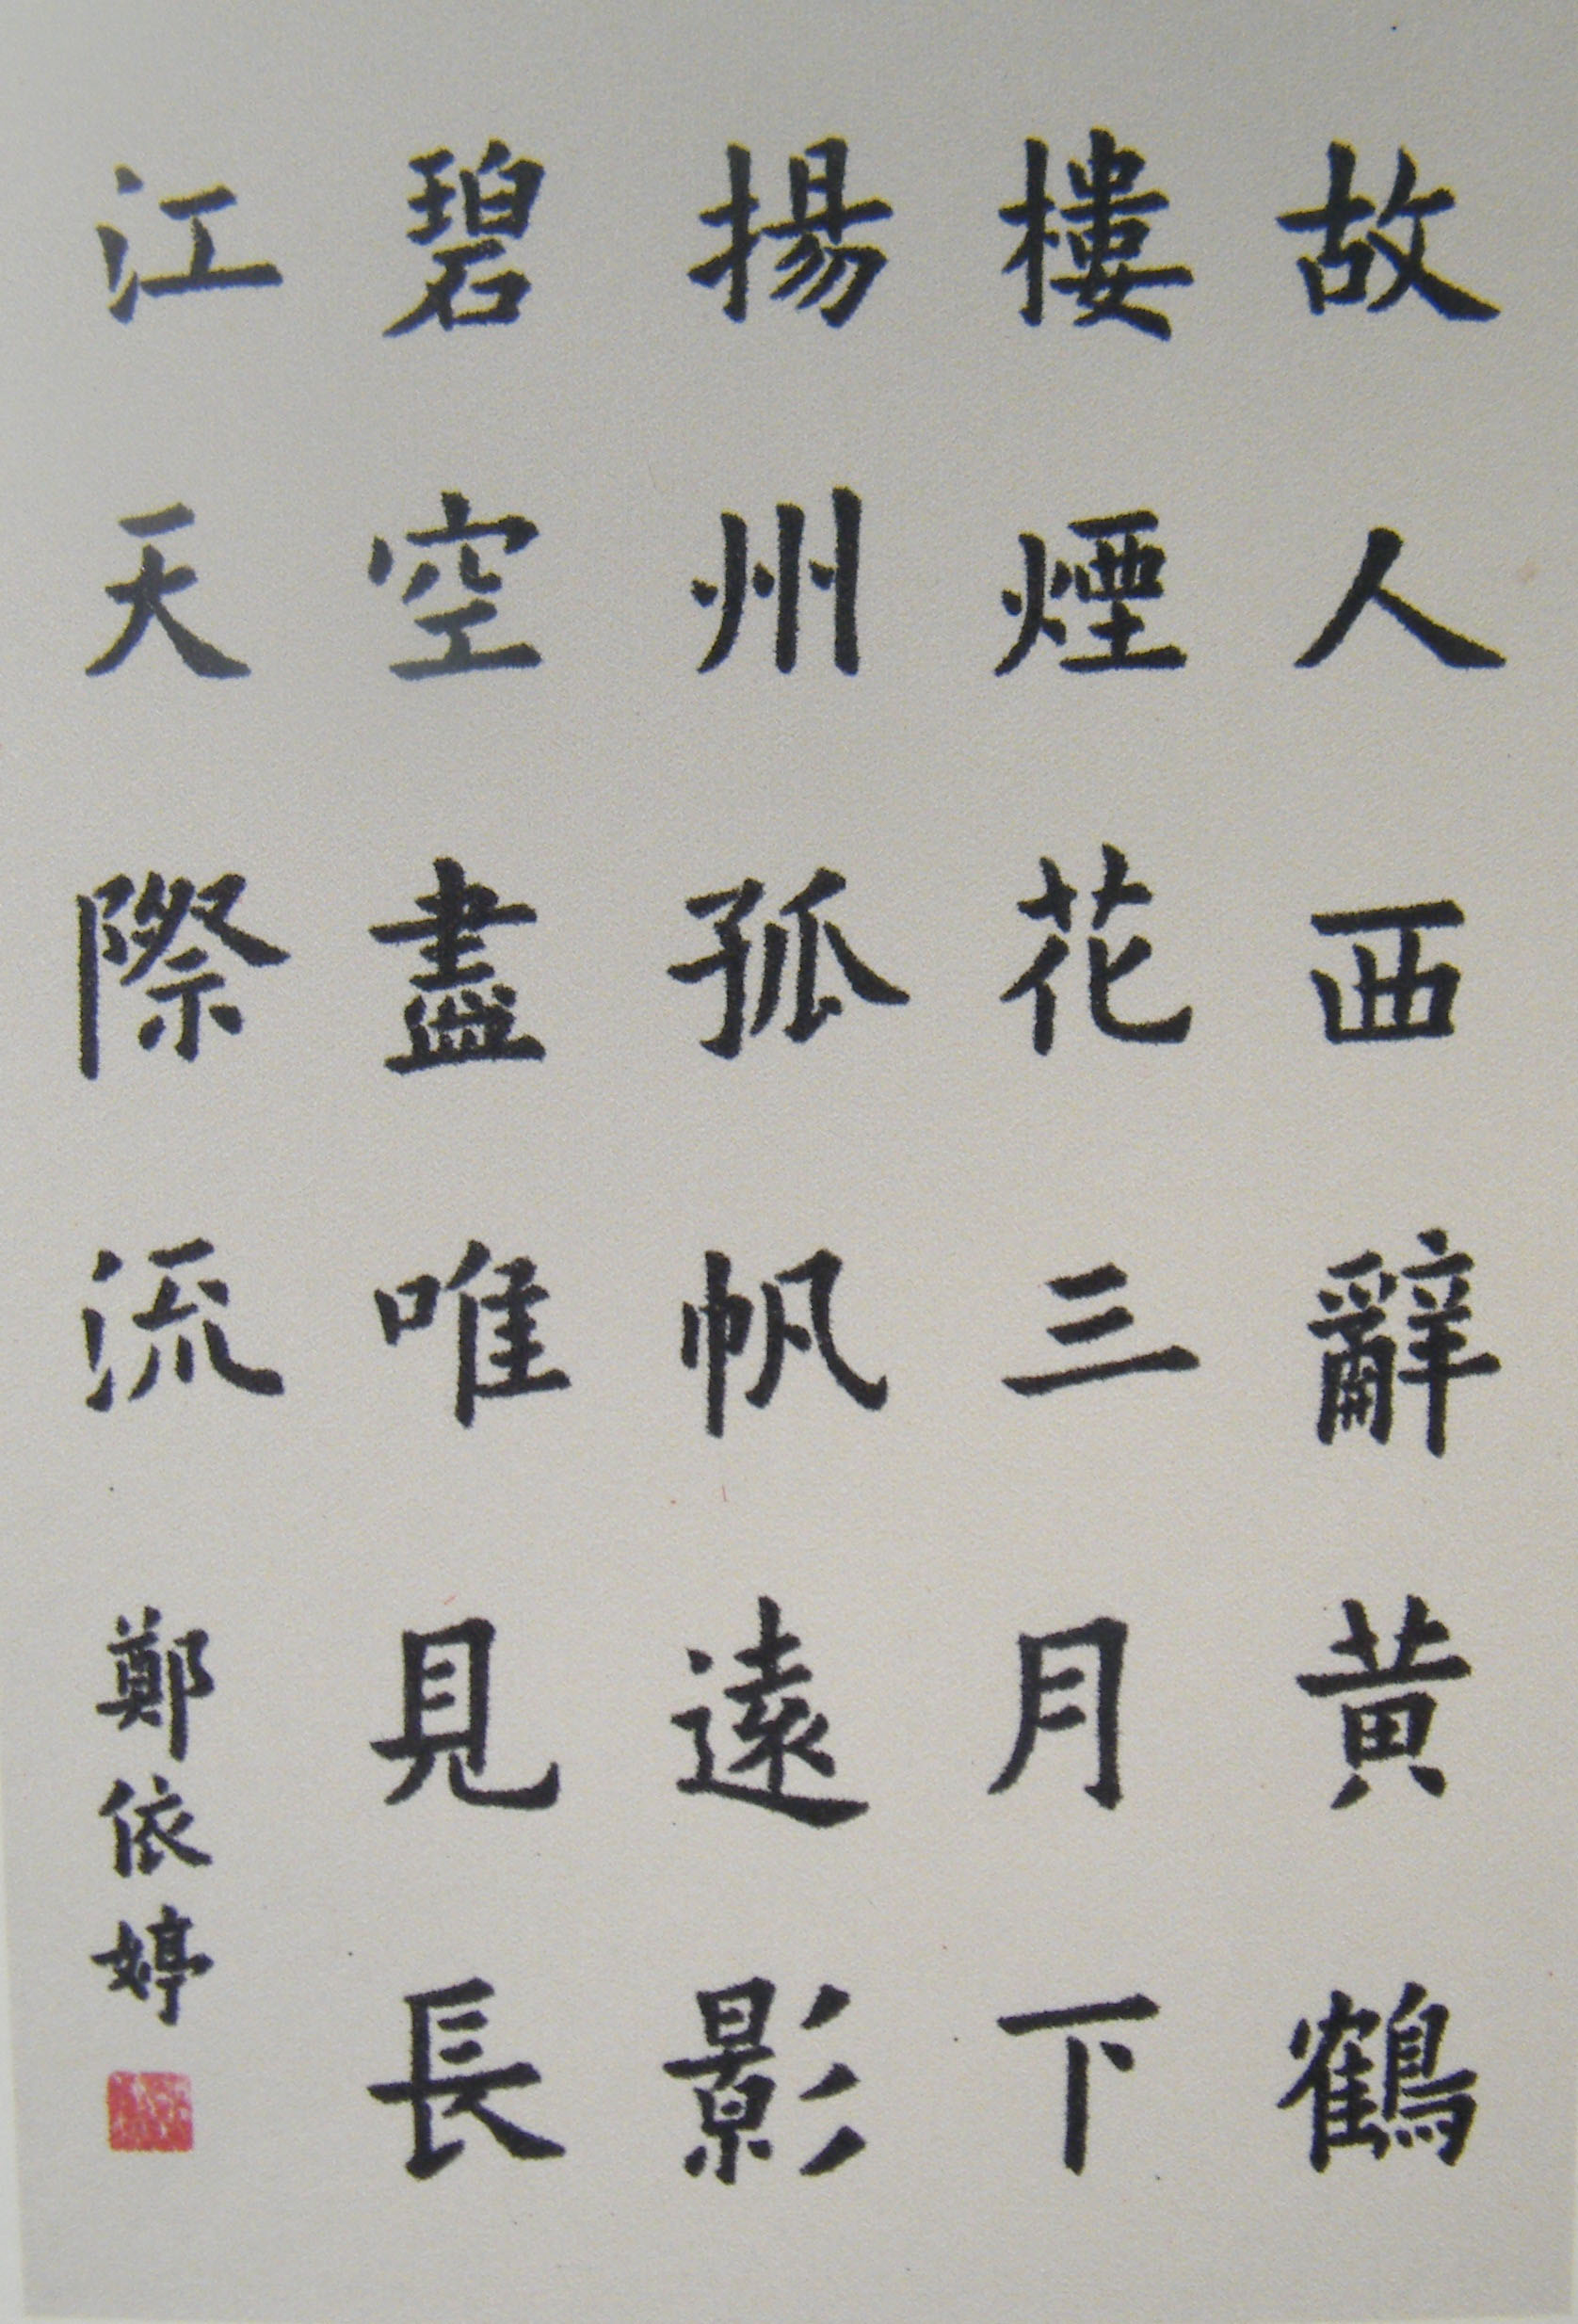 故人西辭黃鶴
樓煙花三月下
揚州孤帆遠影
碧空盡唯見長
江天際流
鄭依婷